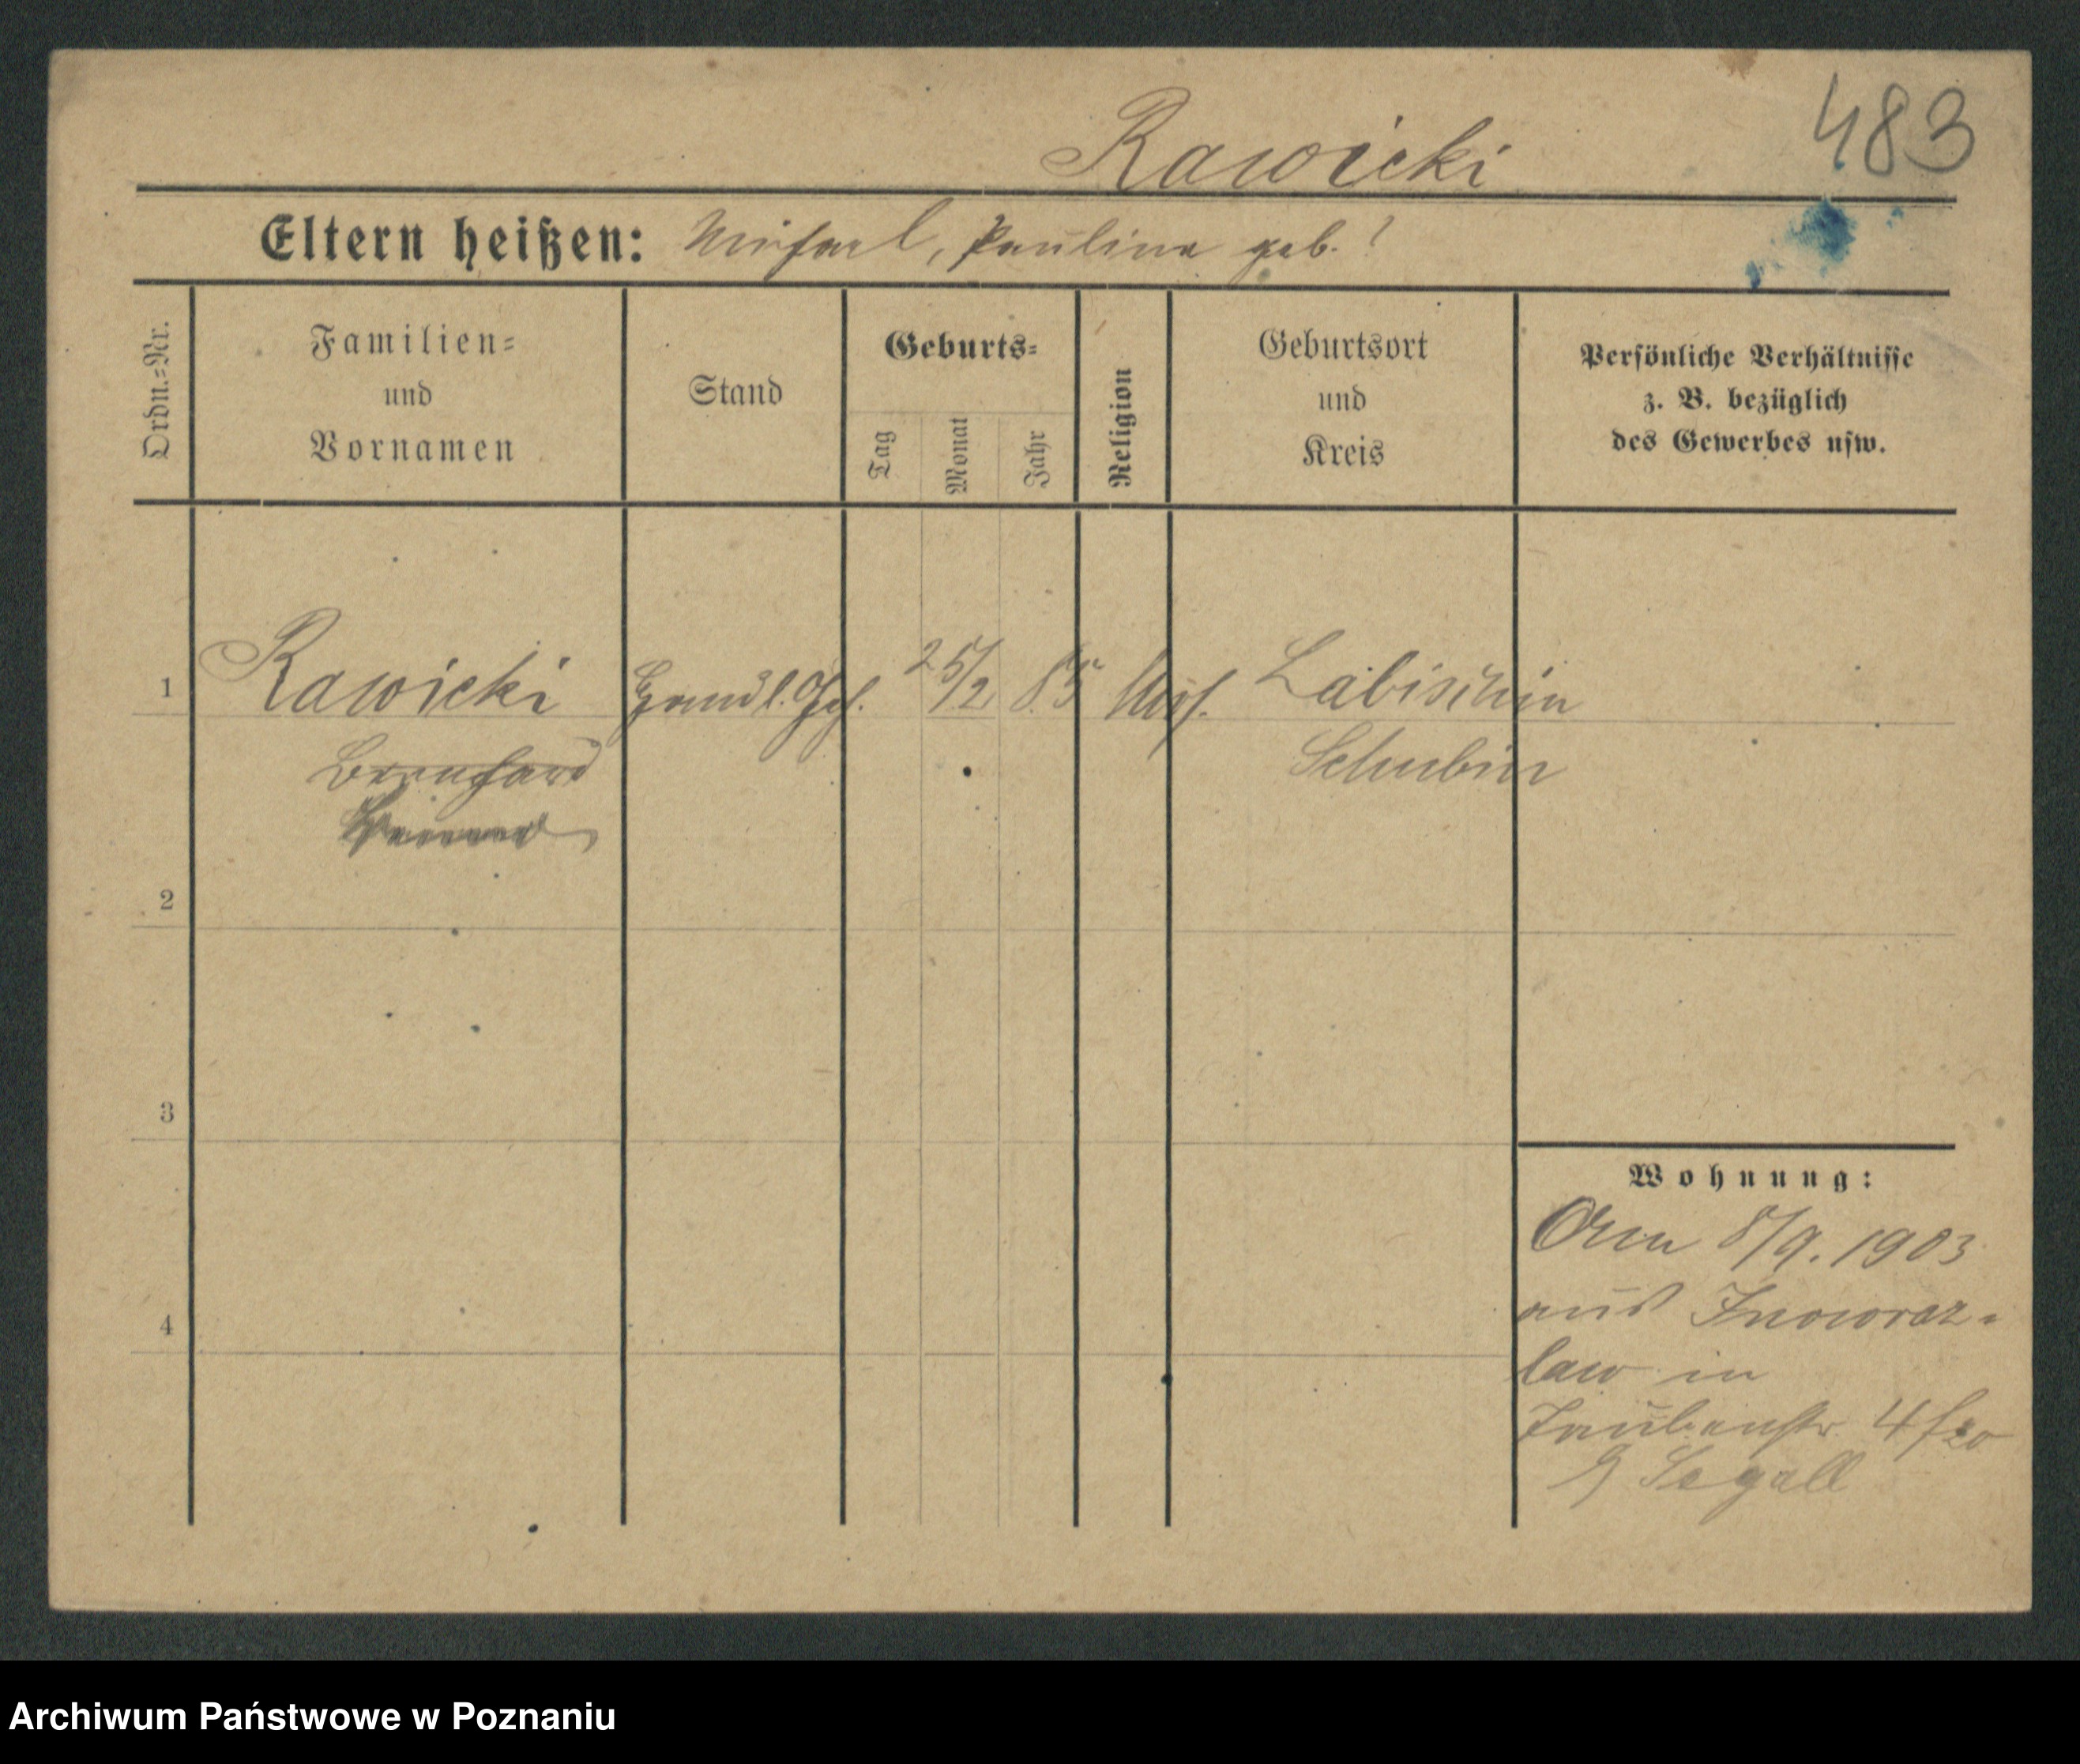 Rawicki
483
Eltern heißen: Michael, Paulina geb. ?
Ordn.-Nr.
Familien-
und
Vornamen
Stand
Geburts-
Tag
Monat
Jahr
Religion
Geburtsort
und
Kreis
Persönliche Verhältnisse
z. B. bezüglich
des Gewerbes usw.
1
Rawicki
Handl. Geh.
25/2
85
Mos.
Labischin
Bernhard
Schubin
2
3
4
Wohnung:
Am 8/9. 1903
aus Inowraz-
law in
Taubenstr. 4
Segall
Archiwum Państwowe w Poznaniu